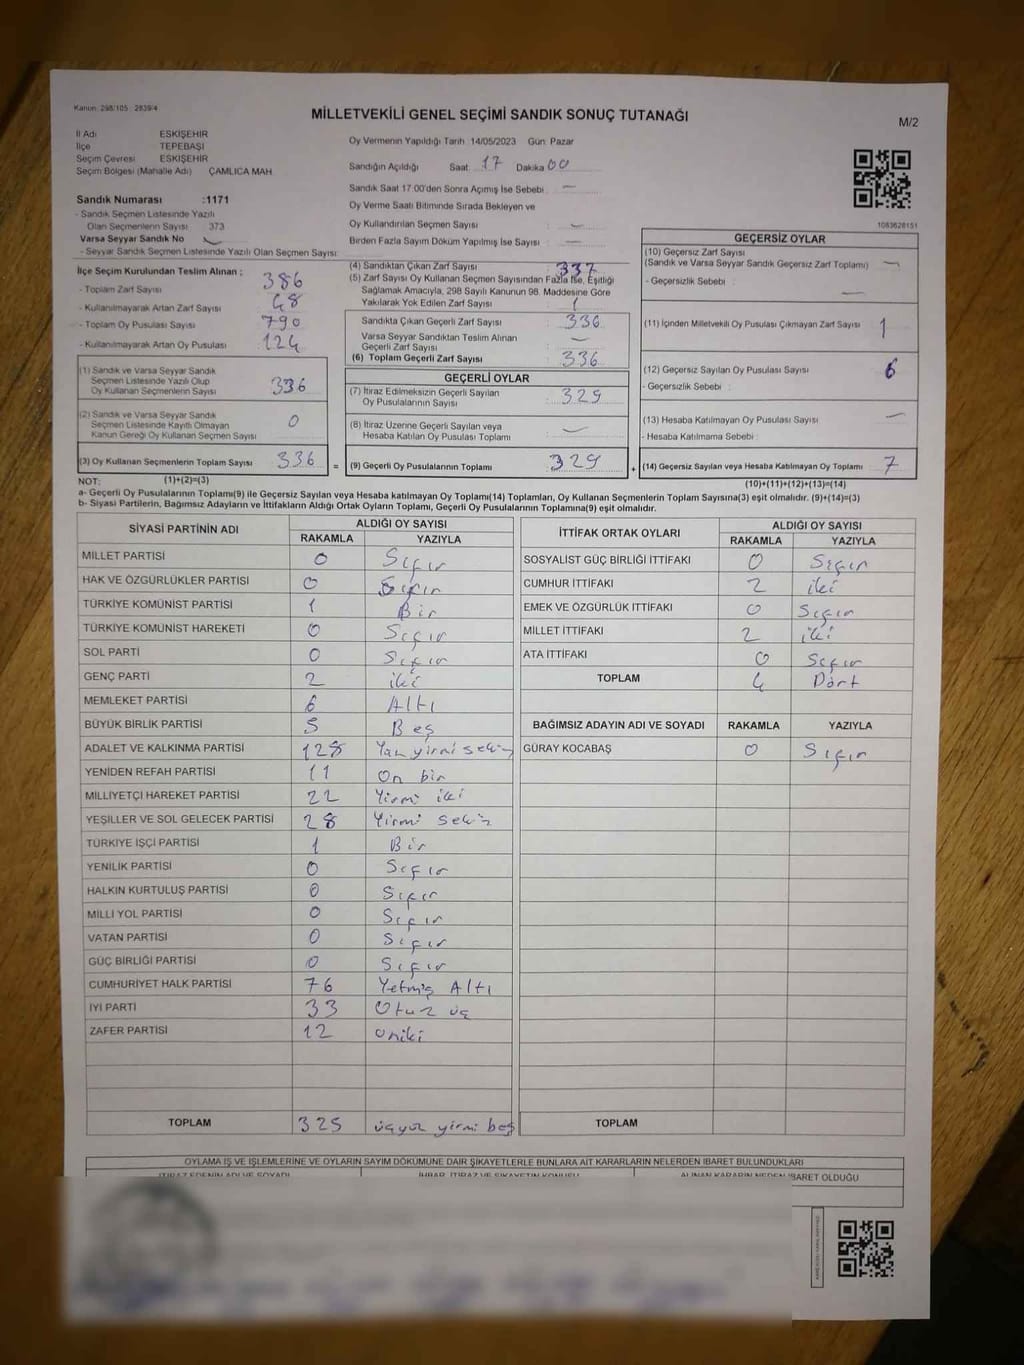 Kanun 298/105 2839/4
MİLLETVEKİLİ GENEL SEÇİMİ SANDIK SONUÇ TUTANAĞI
M/2
İl Adı ESKİŞEHİR
İlçe TEPEBAŞI
Seçim Çevresi ESKİŞEHİR
Seçim Bölgesi (Mahalle Adı) ÇAMLICA MAH.
Sandık Numarası :1171
- Sandık Seçmen Listesinde Yazılı
Olan Seçmenlerin Sayısı 373
Varsa Seyyar Sandık No
- Seyyar Sandık Seçmen Listesinde Yazılı Olan Seçmen Sayısı:
Oy Vermenin Yapıldığı Tarih 14/05/2023 Gün: Pazar
Sandığın Açıldığı Saat: 17 Dakika 00
Sandık Saat 17:00'den Sonra Açımış İse Sebebi :
Oy Verme Saati Bitiminde Sırada Bekleyen ve
Oy Kullandırılan Seçmen Sayısı :
Birden Fazla Sayım Döküm Yapılmış İse Sayısı :
1083628151
İlçe Seçim Kurulundan Teslim Alınan :
- Toplam Zarf Sayısı 386
- Kullanılmayarak Artan Zarf Sayısı 48
- Toplam Oy Pusulası Sayısı 790
- Kullanılmayarak Artan Oy Pusulası 124
(1) Sandık ve Varsa Seyyar Sandık
Seçmen Listesinde Yazılı Olup
Oy Kullanan Seçmenlerin Sayısı 336
(2) Sandık ve Varsa Seyyar Sandık
Seçmen Listesinde Kayıtlı Olmayan
Kanun Gereği Oy Kullanan Seçmen Sayısı 0
(3) Oy Kullanan Seçmenlerin Toplam Sayısı 336
(4) Sandıktan Çıkan Zarf Sayısı 337
(5) Zarf Sayısı Oy Kullanan Seçmen Sayısından Fazla İse, Eşitliği
Sağlamak Amacıyla, 298 Sayılı Kanunun 98. Maddesine Göre
Yakılarak Yok Edilen Zarf Sayısı 1
Sandıkta Çıkan Geçerli Zarf Sayısı : 336
Varsa Seyyar Sandıktan Teslim Alınan
Geçerli Zarf Sayısı
(6) Toplam Geçerli Zarf Sayısı : 336
GEÇERLİ OYLAR
(7) İtiraz Edilmeksizin Geçerli Sayılan
Oy Pusulalarının Sayısı 329
(8) İtiraz Üzerine Geçerli Sayılan veya
Hesaba Katılan Oy Pusulası Toplamı
= (9) Geçerli Oy Pusulalarının Toplamı : 329
GEÇERSİZ OYLAR
(10) Geçersiz Zarf Sayısı
(Sandık ve Varsa Seyyar Sandık Geçersiz Zarf Toplamı)
- Geçersizlik Sebebi :
(11) İçinden Milletvekili Oy Pusulası Çıkmayan Zarf Sayısı 1
(12) Geçersiz Sayılan Oy Pusulası Sayısı 6
- Geçersizlik Sebebi :
(13) Hesaba Katılmayan Oy Pusulası Sayısı
- Hesaba Katılmama Sebebi :
+ (14) Geçersiz Sayılan veya Hesaba Katılmayan Oy Toplamı 7
NOT: (1)+(2)=(3) (10)+(11)+(12)+(13)=(14)
a- Geçerli Oy Pusulalarının Toplamı(9) ile Geçersiz Sayılan veya Hesaba katılmayan Oy Toplamı(14) Toplamları, Oy Kullanan Seçmenlerin Toplam Sayısına(3) eşit olmalıdır. (9)+(14)=(3)
b- Siyasi Partilerin, Bağımsız Adayların ve İttifakların Aldığı Ortak Oyların Toplamı, Geçerli Oy Pusulalarının Toplamına(9) eşit olmalıdır.
SİYASİ PARTİNİN ADI ALDIĞI OY SAYISI
RAKAMLA YAZIYLA
MİLLET PARTİSİ 0 Sıfır
HAK VE ÖZGÜRLÜKLER PARTİSİ 0 Sıfır
TÜRKİYE KOMÜNİST PARTİSİ 1 Bir
TÜRKİYE KOMÜNİST HAREKETİ 0 Sıfır
SOL PARTİ 0 Sıfır
GENÇ PARTİ 2 iki
MEMLEKET PARTİSİ 6 Altı
BÜYÜK BİRLİK PARTİSİ 5 Beş
ADALET VE KALKINMA PARTİSİ 128 Yüz yirmi sekiz
YENİDEN REFAH PARTİSİ 11 On bir
MİLLİYETÇİ HAREKET PARTİSİ 22 Yirmi iki
YEŞİLLER VE SOL GELECEK PARTİSİ 28 Yirmi sekiz
TÜRKİYE İŞÇİ PARTİSİ 1 Bir
YENİLİK PARTİSİ 0 Sıfır
HALKIN KURTULUŞ PARTİSİ 0 Sıfır
MİLLİ YOL PARTİSİ 0 Sıfır
VATAN PARTİSİ 0 Sıfır
GÜÇ BİRLİĞİ PARTİSİ 0 Sıfır
CUMHURİYET HALK PARTİSİ 76 Yetmiş Altı
İYİ PARTİ 33 Otuz üç
ZAFER PARTİSİ 12 oniki
TOPLAM 325 üçyüz yirmi beş
İTTİFAK ORTAK OYLARI ALDIĞI OY SAYISI
RAKAMLA YAZIYLA
SOSYALİST GÜÇ BİRLİĞİ İTTİFAKI 0 Sıfır
CUMHUR İTTİFAKI 2 iki
EMEK VE ÖZGÜRLÜK İTTİFAKI 0 Sıfır
MİLLET İTTİFAKI 2 iki
ATA İTTİFAKI 0 Sıfır
TOPLAM 4 Dört
BAĞIMSIZ ADAYIN ADI VE SOYADI RAKAMLA YAZIYLA
GÜRAY KOCABAŞ 0 Sıfır
TOPLAM
OYLAMA İŞ VE İŞLEMLERİNE VE OYLARIN SAYIM DÖKÜMÜNE DAİR ŞİKAYETLERLE BUNLARA AİT KARARLARIN NELERDEN İBARET BULUNDUKLARI